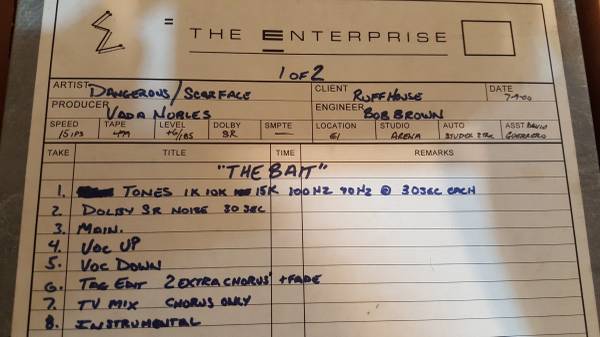 = THE ENTERPRISE
1 OF 2
ARTIST DANGEROUS / SCARFACE CLIENT RUFFHOUSE DATE 7-9-00
PRODUCER VADA NOBLES ENGINEER BOB BROWN
SPEED TAPE LEVEL DOLBY SMPTE LOCATION STUDIO AUTO ASST DAVID
15 IPS 499 +6/185 SR — E1 ARENA GUERRERO
TAKE TITLE TIME REMARKS
"THE BAIT"
1. TONES 1K 10K 15K 100HZ 40HZ @ 30SEC EACH
2. DOLBY SR NOISE 30 SEC
3. MAIN.
4. VOC UP
5. VOC DOWN
6. TAG EDIT 2 EXTRA CHORUS' + FADE
7. TV MIX CHORUS ONLY
8. INSTRUMENTAL